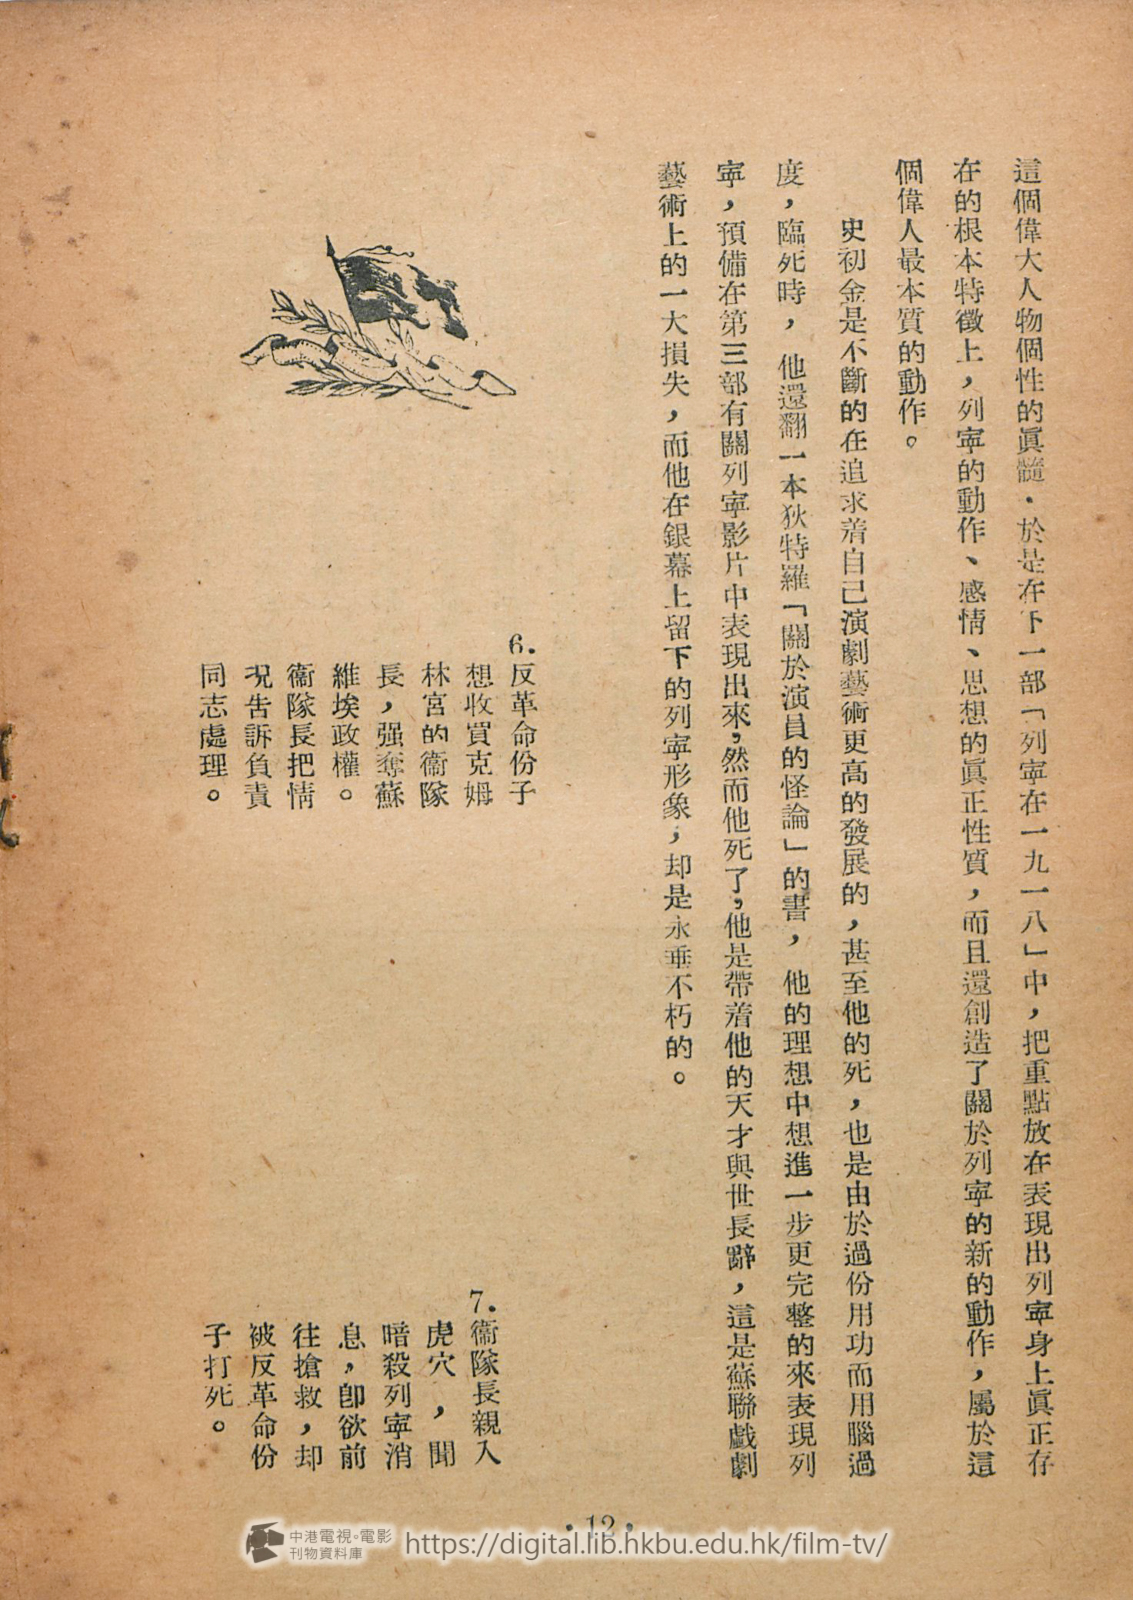 這個偉大人物個性的眞髓．於是在下一部「列寧在一九一八」中，把重點放在表現出列寧身上眞正存
在的根本特徵上，列寧的動作、感情、思想的眞正性質，而且還創造了關於列寧的新的動作，屬於這
個偉人最本質的動作。
史初金是不斷的在追求着自己演劇藝術更高的發展的，甚至他的死，也是由於過份用功而用腦過
度，臨死時，他還翻一本狄特羅「關於演員的怪論」的書，他的理想中想進一步更完整的來表現列
寧，預備在第三部有關列寧影片中表現出來，然而他死了，他是帶着他的天才與世長辭，這是蘇聯戲劇
藝術上的一大損失，而他在銀幕上留下的列寧形象，却是永垂不朽的。
6.反革命份子
想收買克姆
林宮的衞隊
長，强奪蘇
維埃政權。
衞隊長把情
況告訴負責
同志處理。
7.衞隊長親入
虎穴，聞
暗殺列寧消
息，卽欲前
往搶救，却
被反革命份
子打死。
·12·
中港電視·電影
刊物資料庫
https://digital.lib.hkbu.edu.hk/film-tv/